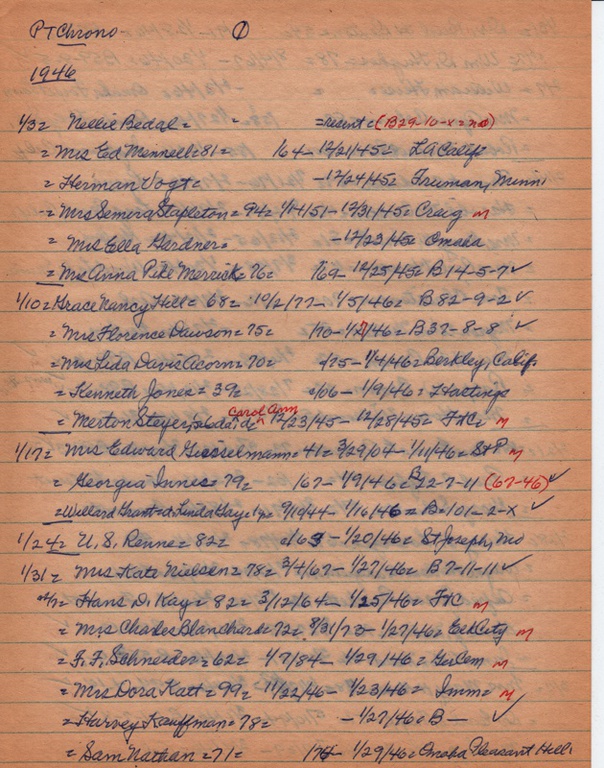 PT Chrono- 0
1946
1/3= Nellie Bedal= = =resent= (B29-10-x=no)
= Mrs Ed Mennell=81= 164- 12/21/45= LA Calif
= Herman Vogt= -12/24/45= Truman, Minn
= Mrs Semira Stapleton=94= 1/14/51- 12/31/45= Craig m
= Mrs Ella Gerdner= -12/23/45= Omaha
= Mrs Anna Pike Merrick=76= 69- 12/25/45= B14-5-7 ✓
1/10= Grace Nancy Hill= 68= 10/2/77- 1/5/46= B 82-9-2 ✓
= Mrs Florence Dawson= 75= /70- 1/7/46= B37-8-8 ✓
= Mrs Lida Davis Acorn= 70= /75- 1/4/46= Berkley, Calif
= Kenneth Jones= 39= /06- 1/9/46= Hastings
= Merton Steyer, Carol Ann 12/23/45- 12/28/45= FtC= m
1/17= Mrs Edward Giesselmann=41= 3/29/04- 1/11/46= StP m
= Georgia Innes= 79= 167- 1/9/46= B22-7-11 (67-46) ✓
= Willard Grant=d. Linda Gay=1y= 9/19/44- 1/16/46= B=101-2-X ✓
1/24= U. S. Renne= 82= /63- 1/20/46= St Joseph, Mo
1/31= Mrs Kate Nielsen=78= 3/4/67- 1/27/46= B7-11-11 ✓
2/7= Hans D. Kay= 82= 3/12/64- 1/25/46= FtC m
= Mrs Charles Blanchard=72= 8/31/73- 1/27/46= TekCity m
= F. F. Schneider=62= 1/7/84- 1/29/46= GerCem m
= Mrs Dora Katt=99= 11/22/46- 1/23/46= Imm= m
= Harvey Kauffman=78= -1/27/46= B- ✓
= Sam Nathan=71= 174- 1/29/46= Omaha Pleasant Hill